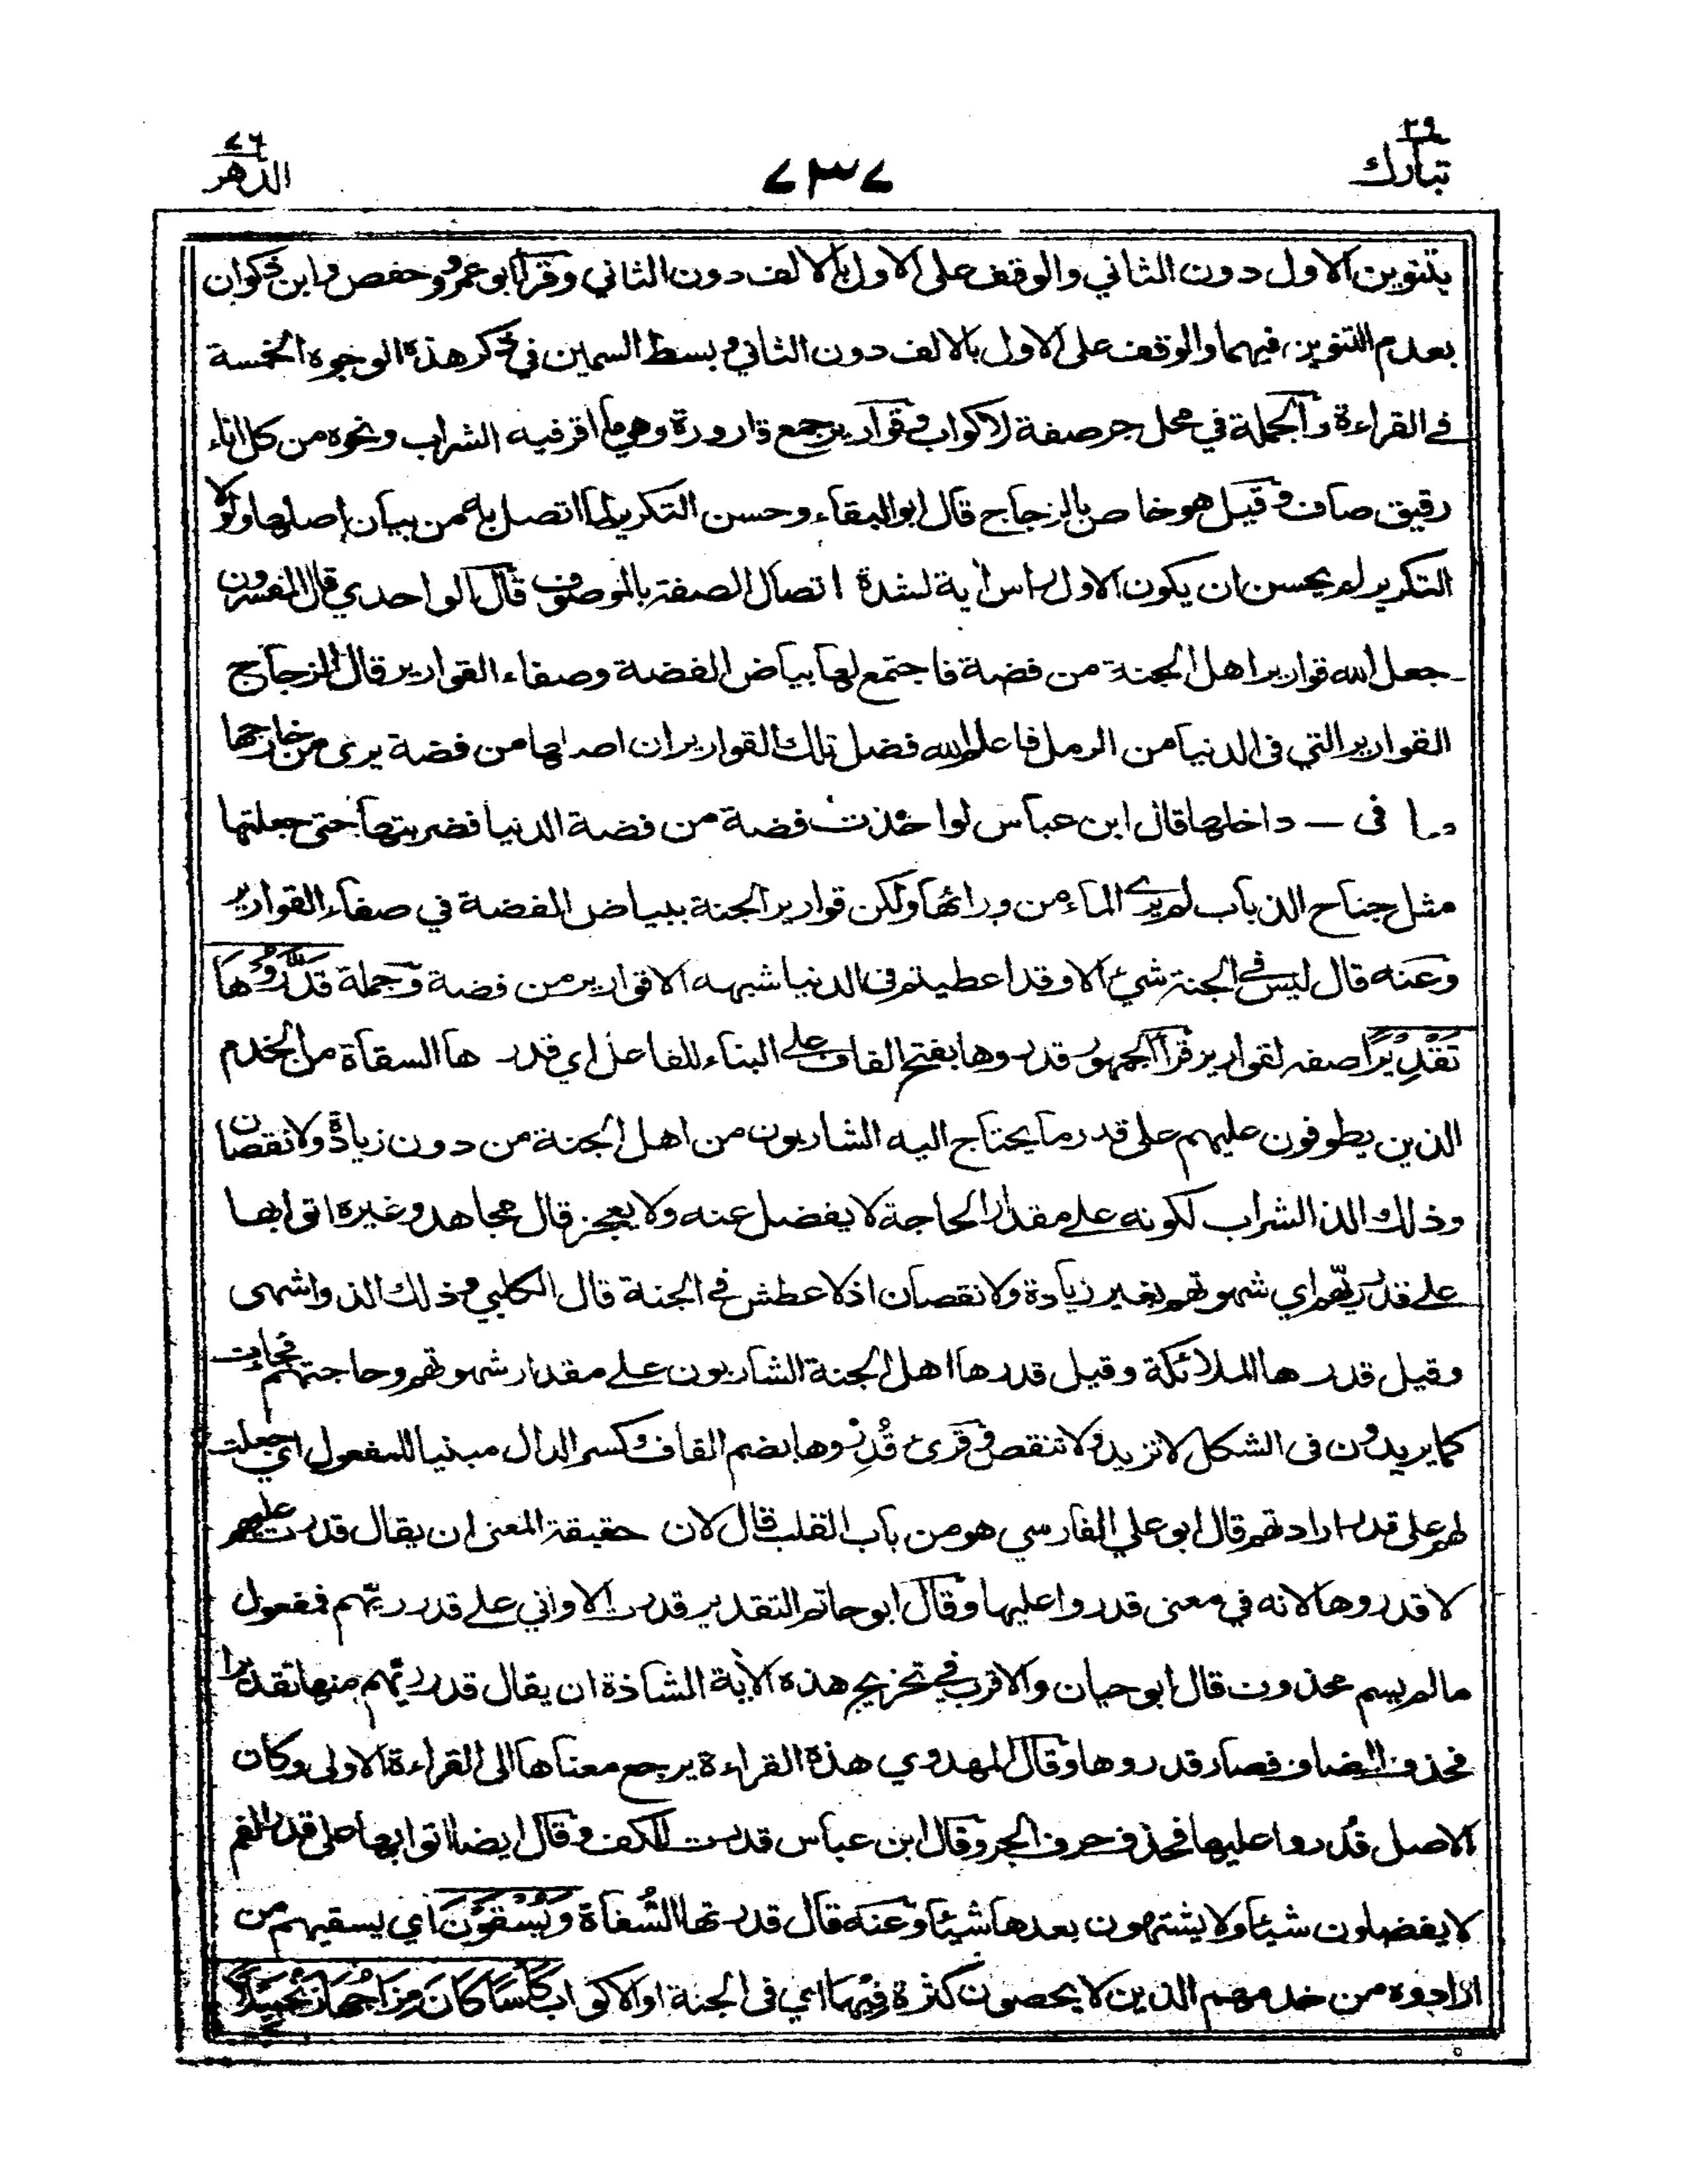 ٢٩
تبارك
٧٣٧
٧٦
الدهر
بتنوين الاول دون الثاني والوقف على الاول بالالف دون الثاني وقرأ ابو عمرو وحفص وابن ذكوان
بعدم التنوين فيهما والوقف على الاول بالالف دون الثاني وبسط السمين في ذكر هذه الوجوه الخمسة
في القراءة والجملة في محل جر صفة لاكواب وقوارير جمع قارورة وهي ما اقر فيه الشراب ونحوه من كل اناء
رقيق صاف وقيل هو خاص بالزجاج قال ابو البقاء وحسن التكرير لما اتصل به من بيان اصلها ولولا
التكرير لم يحسن ان يكون الاول راس أية لشدة اتصال الصفة بالموصوف قال الواحدي قال المفسرون
جعل الله قوارير اهل الجنة من فضة فاجتمع لها بياض الفضة وصفاء القوارير قال الزجاج
القوارير التي فى الدنيا من الرمل فاعلم الله فضل تلك القوارير ان اصلها من فضة يرى من خارجها
ما فى — داخلها قال ابن عباس لو اخذت فضة من فضة الدنيا فضربتها حتى جعلتها
مثل جناح الذباب لم يرى الماء من ورائها ولكن قوارير الجنة ببياض الفضة في صفاء القوارير
وعنه قال ليس في الجنة شيئ الا وقد اعطيتم فى الدنيا شبهه الا قوارير من فضة وجملة قَدَّرُوْهَا
تَقْدِيْرًا صفة لقوارير قرأ الجمهور قدروها بفتح القاف على البناء للفاعل اي قدرها السقاة من الخدم
الذين يطوفون عليهم على قدر ما يحتاج اليه الشاربون من اهل الجنة من دون زيادة ولا نقصان
وذلك الذ الشراب لكونه على مقدار الحاجة لا يفضل عنه ولا يعجز قال مجاهد وغيره اتوا بها
على قدر ريهم اي شهوتهم بغير زيادة ولا نقصان اذ لا عطش في الجنة قال الكلبي وذلك الذ واشهى
وقيل قدرها الملائكة وقيل قدرها اهل الجنة الشاربون على مقدار شهوتهم وحاجتهم فجاءت
كما يريدون فى الشكل لا تزيد ولا تنقص وقرئ قُدِرُوها بضم القاف وكسر الدال مبنيا للمفعول اي جعلت
لهم على قدر ارادتهم قال ابو علي الفارسي هو من باب القلب قال لان حقيقة المعنى ان يقال قدرت عليهم
لا قدروها لانه في معنى قدروا عليها وقال ابو حاتم التقدير قدرت الاواني على قدر ريهم فمفعول
مالم يسم محذوف قال ابو حيان والاقرب في تخريج هذه الأية الشاذة ان يقال قدر ريهم منها تقديرا
فحذف المضاف فصار قدروها وقال المهدوي هذه القراءة يرجع معناها الى القراءة الاولى وكان
الاصل قُدروا عليها فحذف حرف الجر وقال ابن عباس قدرت للكف وقال ايضا اتوا بها على قدر الفم
لا يفضلون شيئا ولا يشتهون بعدها شيئا وعنه قال قدرتها السُّقاة وَيُسْقَوْنَ اي يسقيهم من
ارادوه من خدمهم الذين لا يحصون كثرة فِيْهَا اي فى الجنة او الاكواب كَأْسًا كَانَ مِزَاجُهَا زَنْجَبِيْلًا